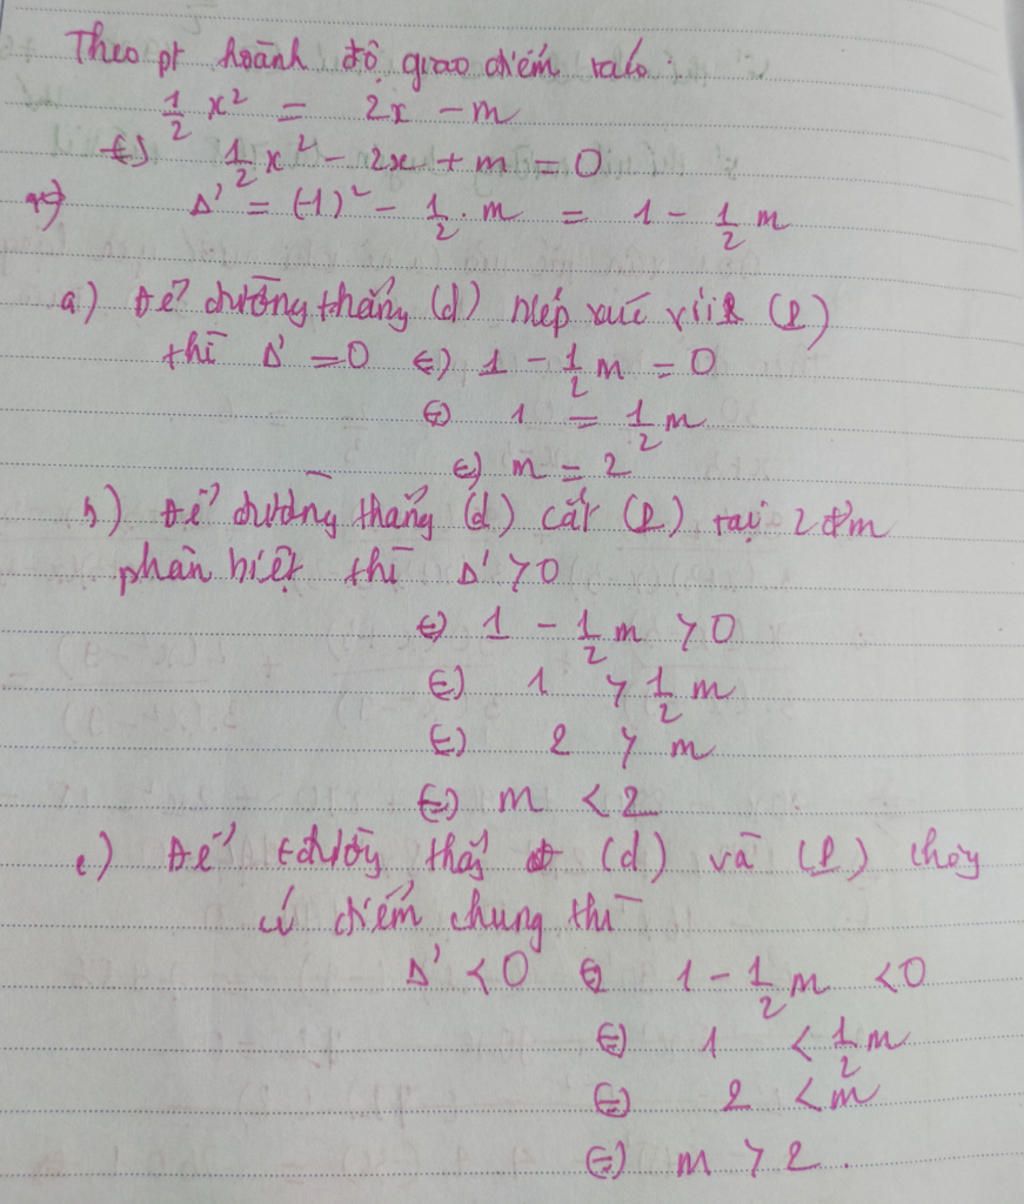 Theo pt hoành độ giao điểm ta có:
1/2 x² = 2x - m
⇔ 1/2 x² - 2x + m = 0
⇒ Δ' = (-1)² - 1/2 . m = 1 - 1/2 m
a) Để đường thẳng (d) tiếp xúc với (P)
thì Δ' = 0 ⇔ 1 - 1/2 m = 0
⇔ 1 = 1/2 m
⇔ m = 2
b) Để đường thẳng (d) cắt (P) tại 2 đ'm
phân biệt thì Δ' > 0
⇔ 1 - 1/2 m > 0
⇔ 1 > 1/2 m
⇔ 2 > m
⇔ m < 2
c) Để đường thẳng (d) và (P) không
có điểm chung thì
Δ' < 0 ⇔ 1 - 1/2 m < 0
⇔ 1 < 1/2 m
⇔ 2 < m
⇔ m > 2 .